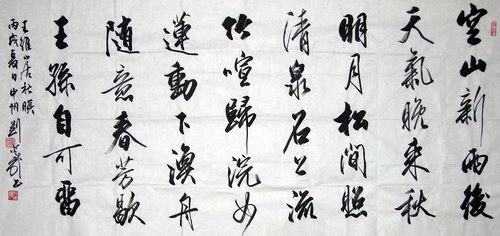 空山新雨後
天氣晚來秋
明月松澗照
清泉石上流
竹喧歸浣女
蓮動下漁舟
隨意春芳歇
王孫自可留
王維山居秋暝
丙戌夏日中州劉書